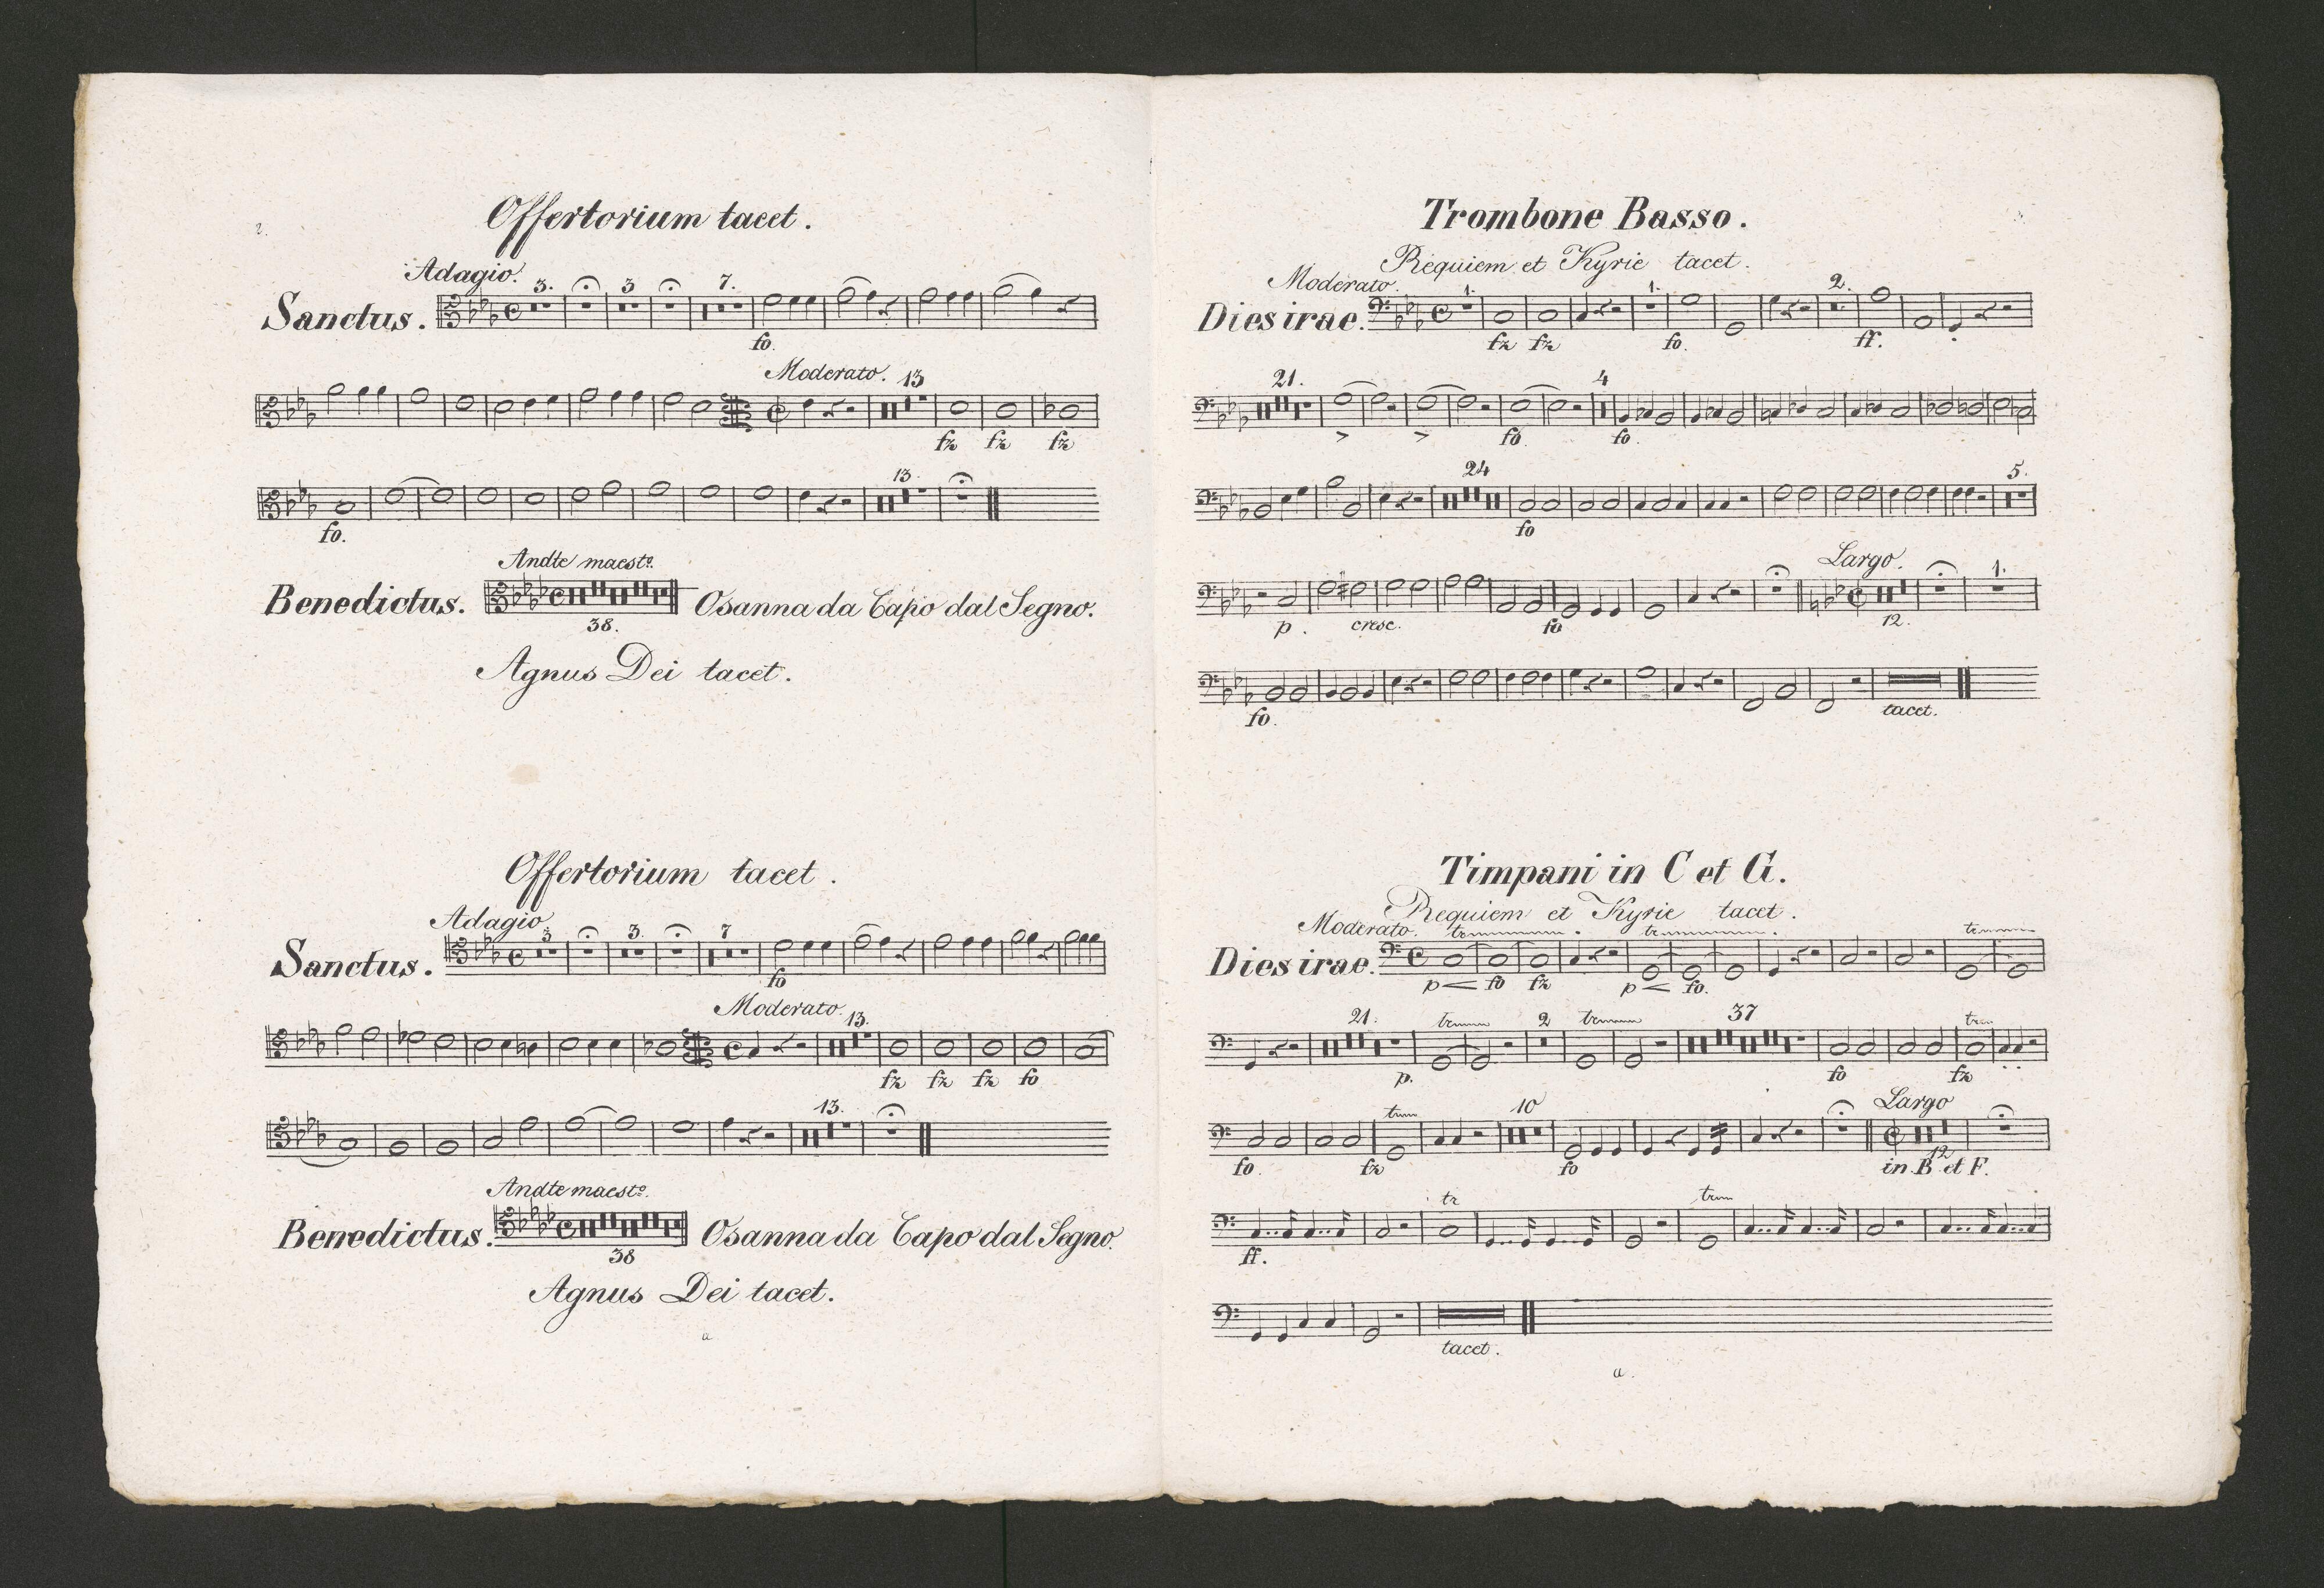 2.
Offertorium tacet.
Adagio.
Sanctus.
3. 3 7.
fo.
Moderato. 13
fz fz fz
13.
fo.
Andte maesto.
Benedictus.
38.
Osanna da Capo dal Segno.
Agnus Dei tacet.
Offertorium tacet.
Adagio.
Sanctus.
3 3. 7
fo
Moderato. 13.
fz fz fz fo
13.
Andte maesto.
Benedictus.
38
Osanna da Capo dal Segno.
Agnus Dei tacet.
a
Trombone Basso.
Requiem et Kyrie tacet.
Moderato.
Dies irae.
1. 1. 2.
fz fz fo. ff.
21. 4
fo fo.
24 5.
fo
Largo. 1.
p. cresc. fo 12.
fo. tacet.
Timpani in C et G.
Requiem et Kyrie tacet.
Moderato.
Dies irae.
tr tr tr
p fo fz p fo.
21. tr 2 tr 37 tr
p. fo fz
tr 10 Largo
fo. fz fo 12
in B et F.
tr tr
ff.
tacet.
a.